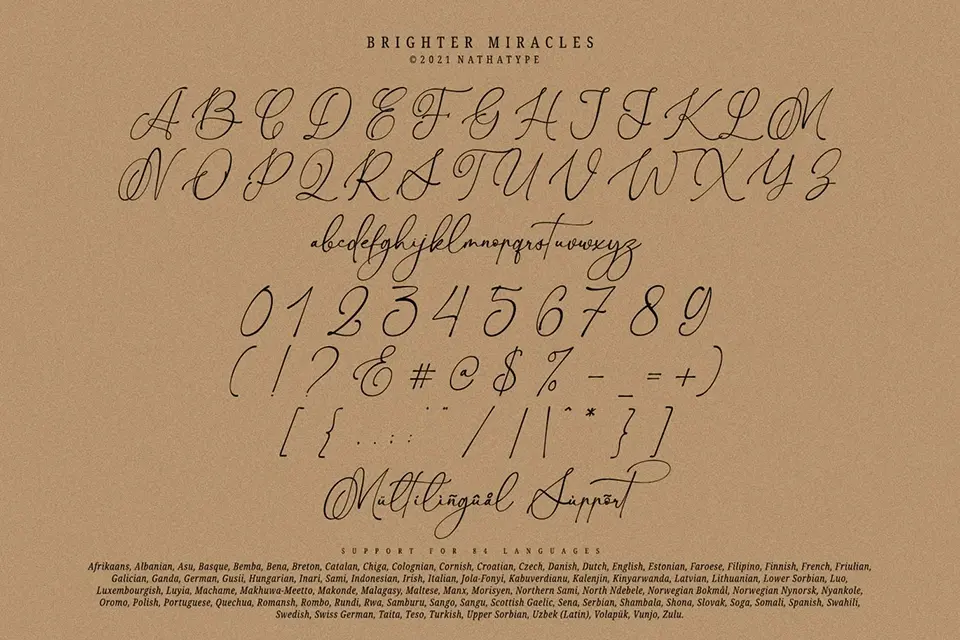 BRIGHTER MIRACLES
©2021 NATHATYPE
ABCDEFGHIJKLM
NOPQRSTUVWXYZ
abcdefghijklmnopqrstuvwxyz
0123456789
(!?&#@$%-_=+)
[{.,;:'"/|\^*}]
Mùltiliñgûål Sùppõrt
SUPPORT FOR 84 LANGUAGES
Afrikaans, Albanian, Asu, Basque, Bemba, Bena, Breton, Catalan, Chiga, Colognian, Cornish, Croatian, Czech, Danish, Dutch, English, Estonian, Faroese, Filipino, Finnish, French, Friulian,
Galician, Ganda, German, Gusii, Hungarian, Inari, Sami, Indonesian, Irish, Italian, Jola-Fonyi, Kabuverdianu, Kalenjin, Kinyarwanda, Latvian, Lithuanian, Lower Sorbian, Luo,
Luxembourgish, Luyia, Machame, Makhuwa-Meetto, Makonde, Malagasy, Maltese, Manx, Morisyen, Northern Sami, North Ndebele, Norwegian Bokmål, Norwegian Nynorsk, Nyankole,
Oromo, Polish, Portuguese, Quechua, Romansh, Rombo, Rundi, Rwa, Samburu, Sango, Sangu, Scottish Gaelic, Sena, Serbian, Shambala, Shona, Slovak, Soga, Somali, Spanish, Swahili,
Swedish, Swiss German, Taita, Teso, Turkish, Upper Sorbian, Uzbek (Latin), Volapük, Vunjo, Zulu.